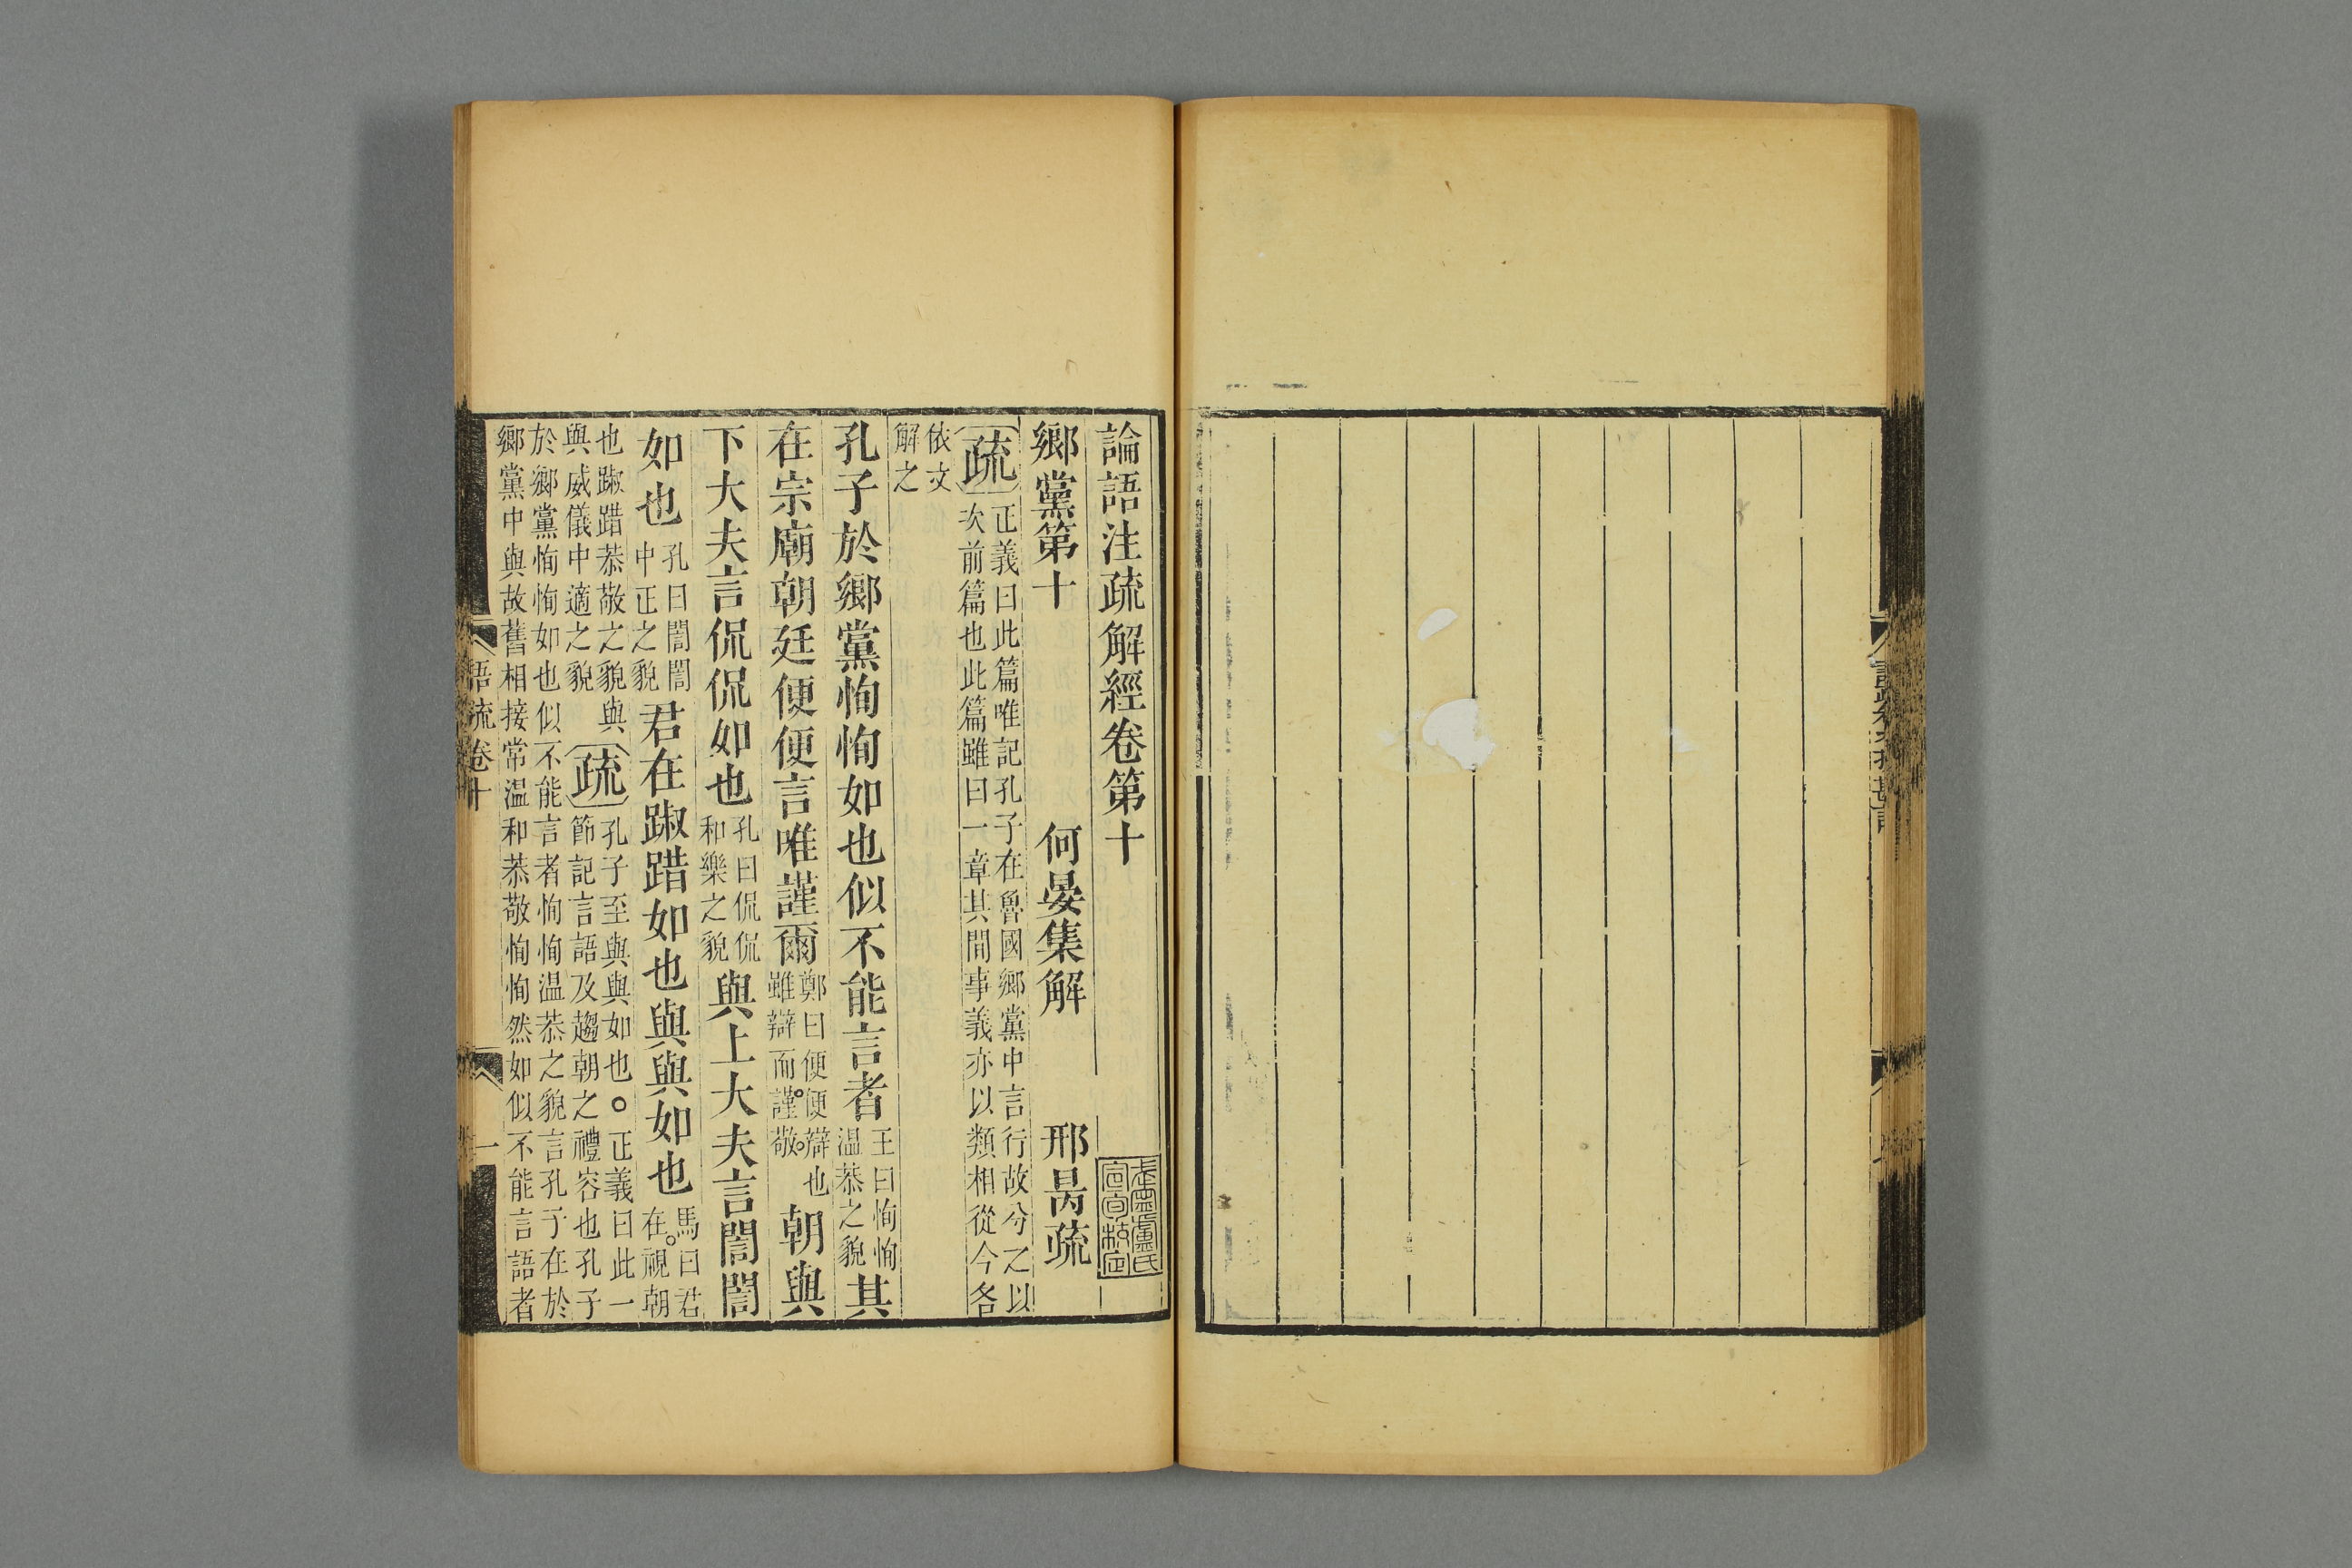 論語注疏解經卷第十
鄉黨第十　何晏集解　邢昺疏
疏
正義曰此篇唯記孔子在魯國鄉黨中言行故分之以
次前篇也此篇雖曰一章其間事義亦以類相從今各
依文
解之
孔子於鄉黨恂恂如也似不能言者
王曰恂恂
温恭之貌
其
在宗廟朝廷便便言唯謹爾
鄭曰便便辯也
雖辯而謹敬
朝與
下大夫言侃侃如也
孔曰侃侃
和樂之貌
與上大夫言誾誾
如也
孔曰誾誾
中正之貌
君在踧踖如也與與如也
馬曰君
在視朝
也踧踖恭敬之貌與
與威儀中適之貌
疏
孔子至與與如也○正義曰此一
節記言語及趨朝之禮容也孔子
於鄉黨恂恂如也似不能言者恂恂温恭之貌言孔子在於
鄉黨中與故舊相接常温和恭敬恂恂然如似不能言語者
語疏卷十
一